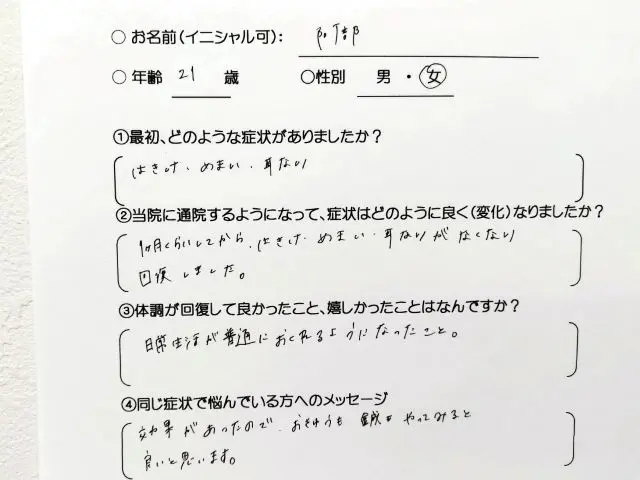 ○ お名前(イニシャル可): 阿部
○ 年齢 21 歳 ○性別 男 ・ 女
①最初、どのような症状がありましたか?
はきけ・めまい・耳なり
②当院に通院するようになって、症状はどのように良く(変化)なりましたか?
1ヶ月くらいしてから、はきけ・めまい・耳なりがなくなり
回復しました。
③体調が回復して良かったこと、嬉しかったことはなんですか?
日常生活が普通におくれるようになったこと。
④同じ症状で悩んでいる方へのメッセージ
効果があったので、おきゅうも鍼もやってみると
良いと思います。